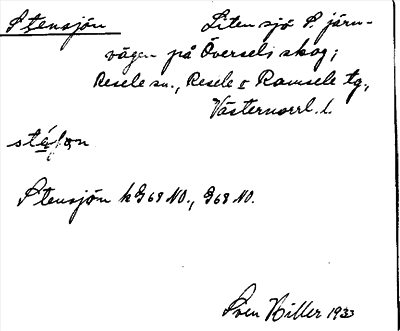 Stensjön Liten sjö S järn-
vägen på Översels skog;
Resele sn., Resele o Ramsele tg,
Västernorrl. l.
Stensjön k G68 NO., G68 NO.
Sven Hiller 1933